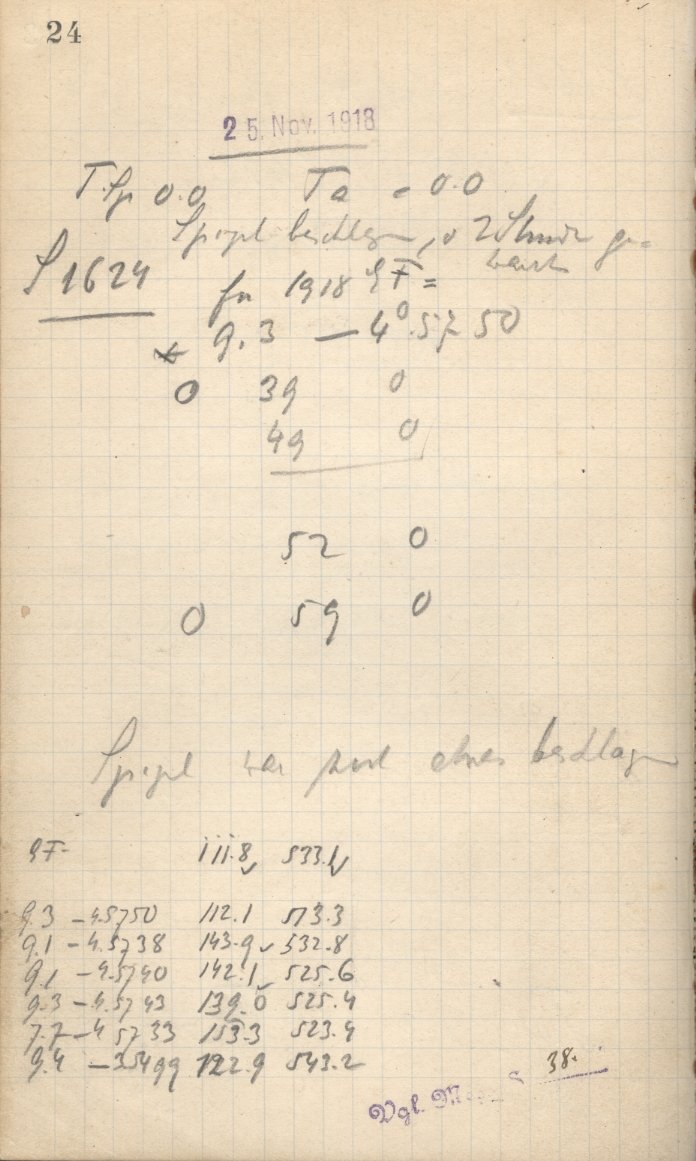 24
25. Nov. 1918
T. Sp 0.0 Ta = 0.0
Spiegel beschlagen, 2 ge=
S 1624
für 1918 GF =
* 9.3 — 4°.57 50
0 39 0
49 0
52 0
0 59 0
Spiegel war etwas beschlagen
GF. 111.8 533.1
9.3 – 4.5750 112.1 513.3
9.1 – 4.5738 143.9 532.8
9.1 – 4.5740 142.1 525.6
9.3 – 4.5743 139.0 525.4
7.7 – 4 5733 153.3 523.4
9.4 – 3.5499 122.9 543.2
38.
Vgl.